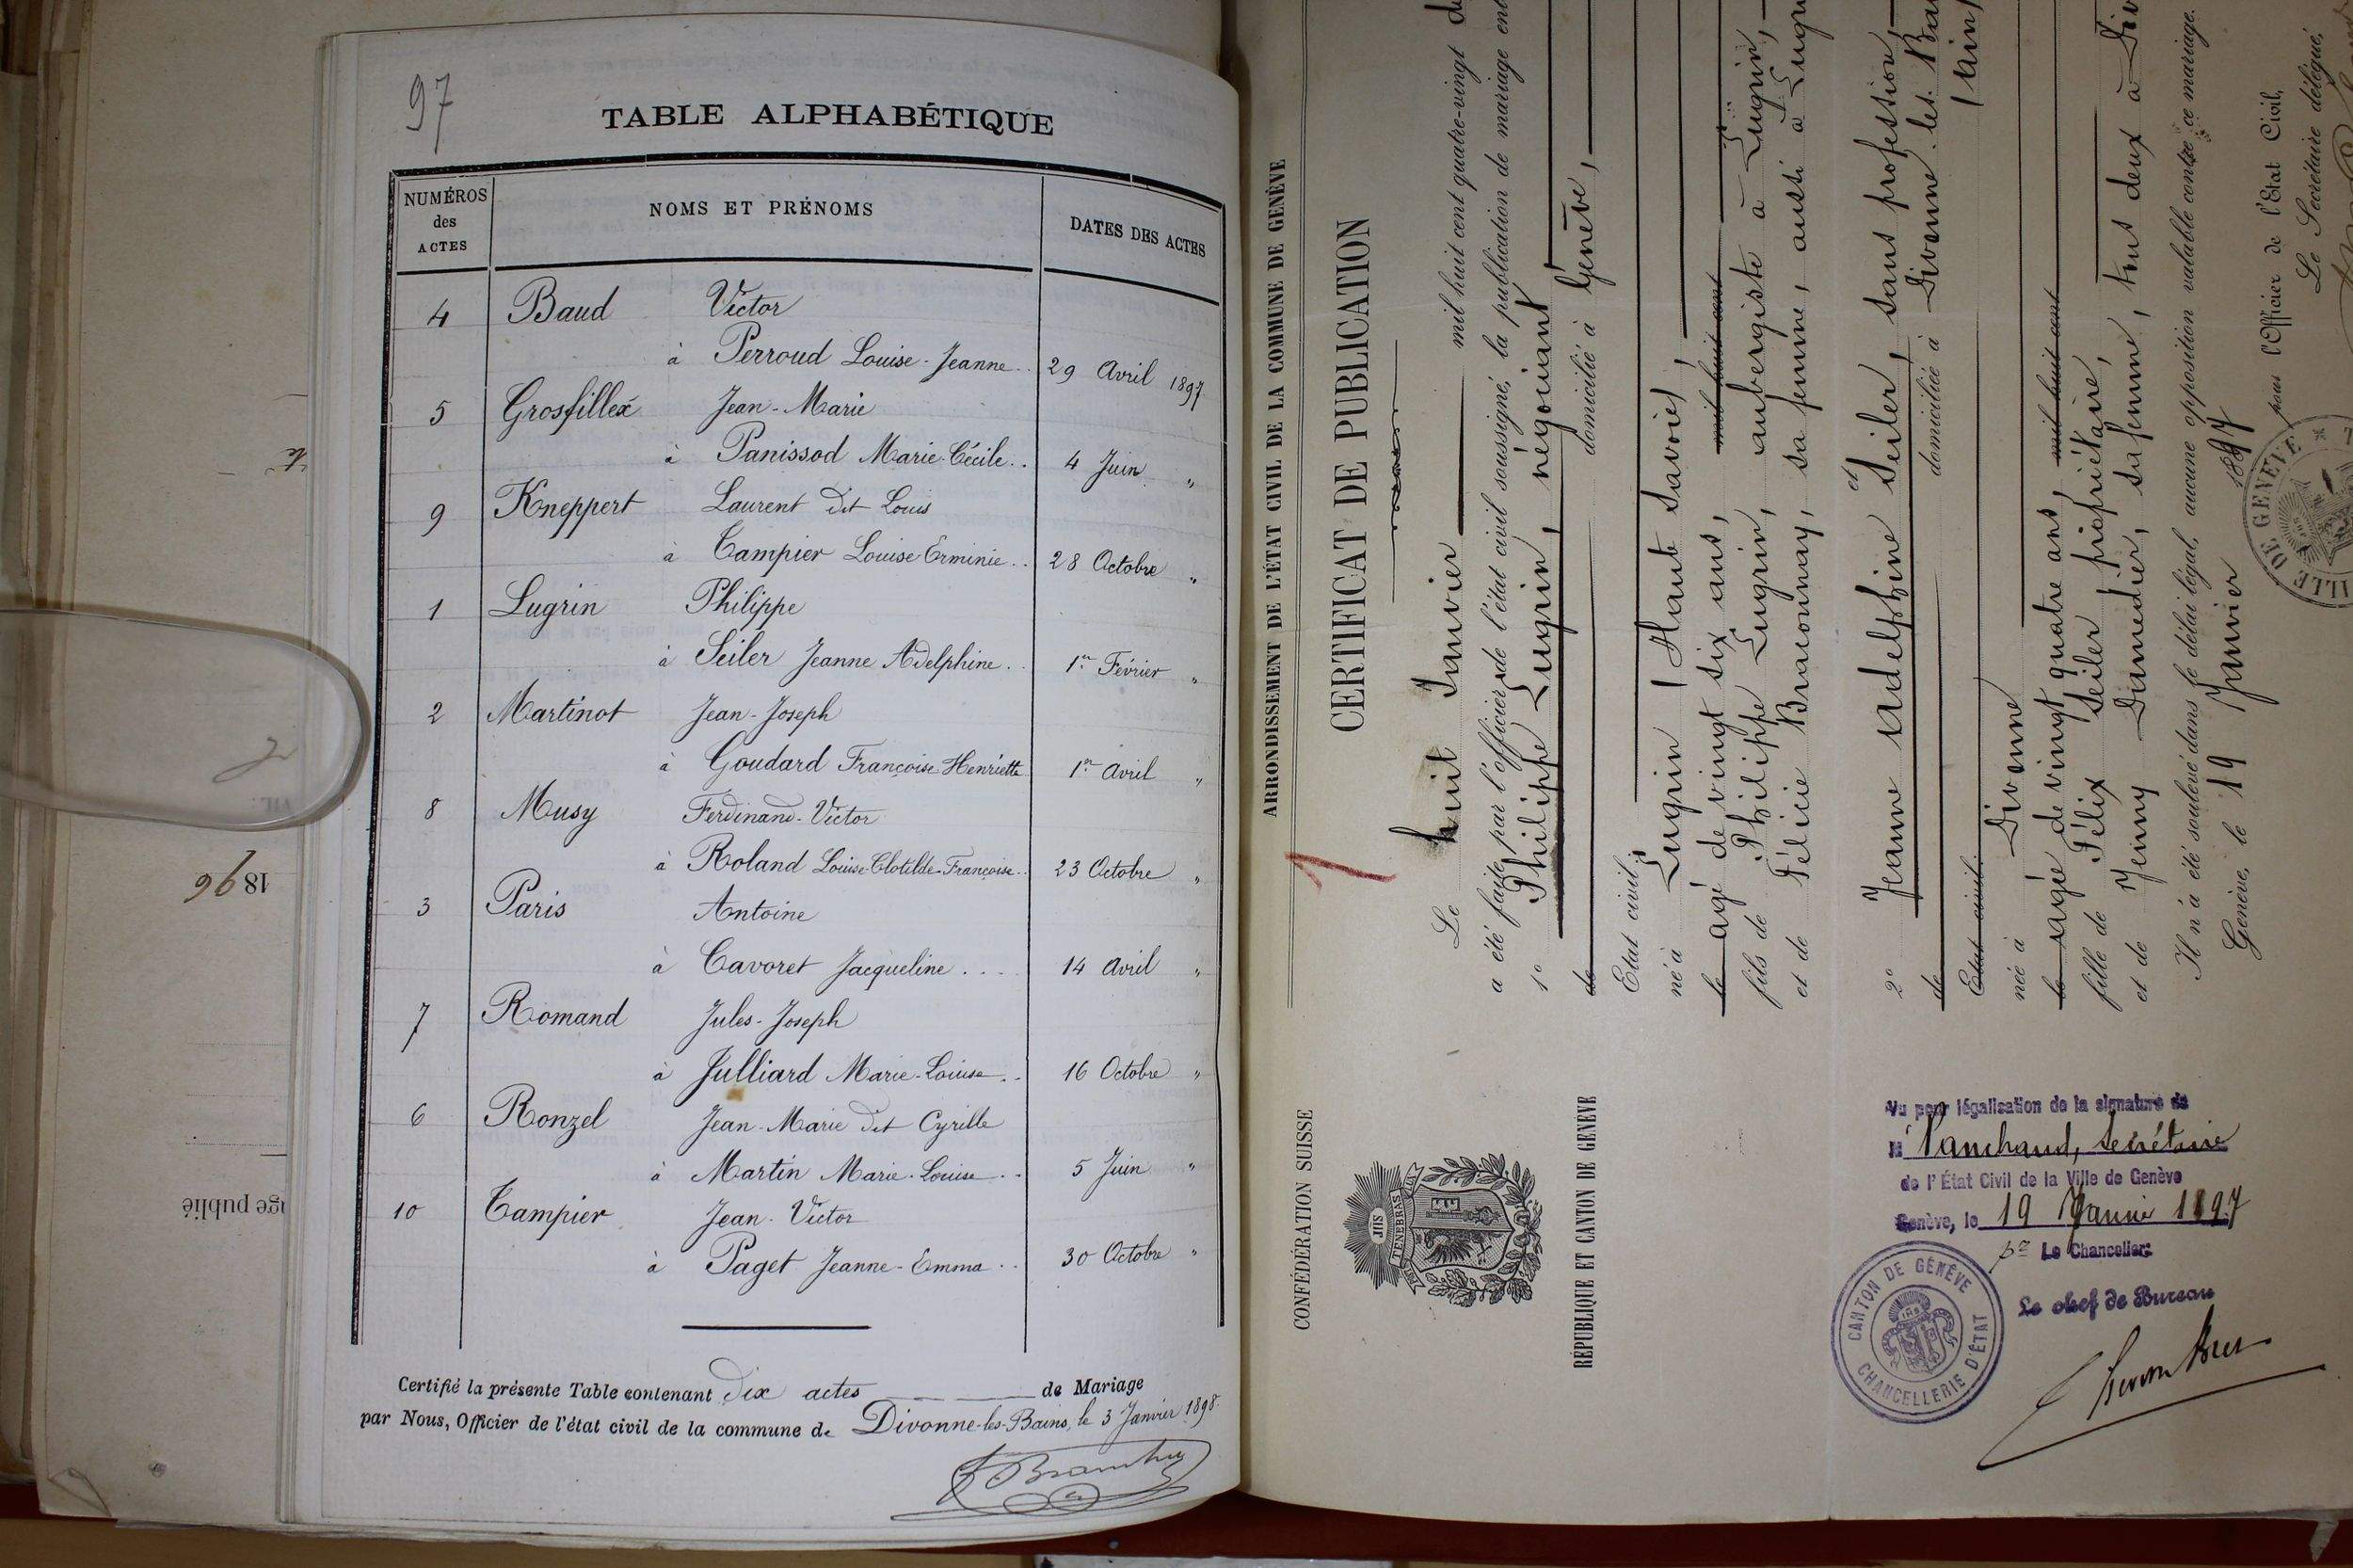 97
TABLE ALPHABÉTIQUE
NUMÉROS
des
ACTES
NOMS ET PRÉNOMS
DATES DES ACTES
4 Baud Victor
à Perroud Louise-Jeanne.. 29 Avril 1897
5 Grosfillex Jean-Marie
à Panissod Marie-Cécile.. 4 Juin "
9 Kneppert Laurent dit Louis
à Tampier Louise Erminie.. 28 Octobre "
1 Lugrin Philippe
à Seiler Jeanne Adelphine.. 1er Février "
2 Martinot Jean-Joseph
à Goudard Françoise Henriette 1er Avril "
8 Musy Ferdinand-Victor
à Roland Louise-Clotilde-Françoise.. 23 Octobre "
3 Paris Antoine
à Cavoret Jacqueline.... 14 Avril "
7 Romand Jules-Joseph
à Julliard Marie-Louise.. 16 Octobre "
6 Ronzel Jean-Marie dit Cyrille
à Martin Marie-Louise.. 5 Juin "
10 Tampier Jean-Victor
à Paget Jeanne-Emma.. 30 Octobre "
Certifié la présente Table contenant dix actes de Mariage
par Nous, Officier de l'état civil de la commune de Divonne-les-Bains, le 3 Janvier 1898.
1896
ge publié
ARRONDISSEMENT DE L'ÉTAT CIVIL DE LA COMMUNE DE GENÈVE
CERTIFICAT DE PUBLICATION
1
Le huit Janvier mil huit cent quatre-vingt
a été faite par l'officier de l'état civil soussigné, la publication de mariage
1° Philippe Lugrin, négociant
de domicilié à Genève,
Etat civil:
né à Lugrin (Haute Savoie),
le agé de vingt six ans, mil huit cent
fils de Philippe Lugrin, aubergiste à Lugrin,
et de Félicie Braconnay, sa femme, aussi à
et
2° Jeanne Adelphine Seiler, sans profession,
de domiciliée à Divonne les
(Ain)
Etat civil:
née à Divonne
le agée de vingt quatre ans, mil huit cent
fille de Félix Seiler, propriétaire,
et de Jenny Dumedier, sa femme, tous deux à
Il n'a été soulevé dans le délai légal, aucune opposition valable contre ce mariage.
Genève, le 19 Janvier 1897
pour l'Officier de l'Etat Civil,
Le Secrétaire délégué,
VILLE DE GENÈVE
CONFÉDÉRATION SUISSE
JHS
POST TENEBRAS LUX
RÉPUBLIQUE ET CANTON DE GENÈVE
Vu pour légalisation de la signature de
M Panchaud, secrétaire
de l'État Civil de la Ville de Genève
Genève, le 19 Janvier 1897
pr Le Chancelier:
Le chef de Bureau
CANTON DE GENÈVE
CHANCELLERIE D'ÉTAT